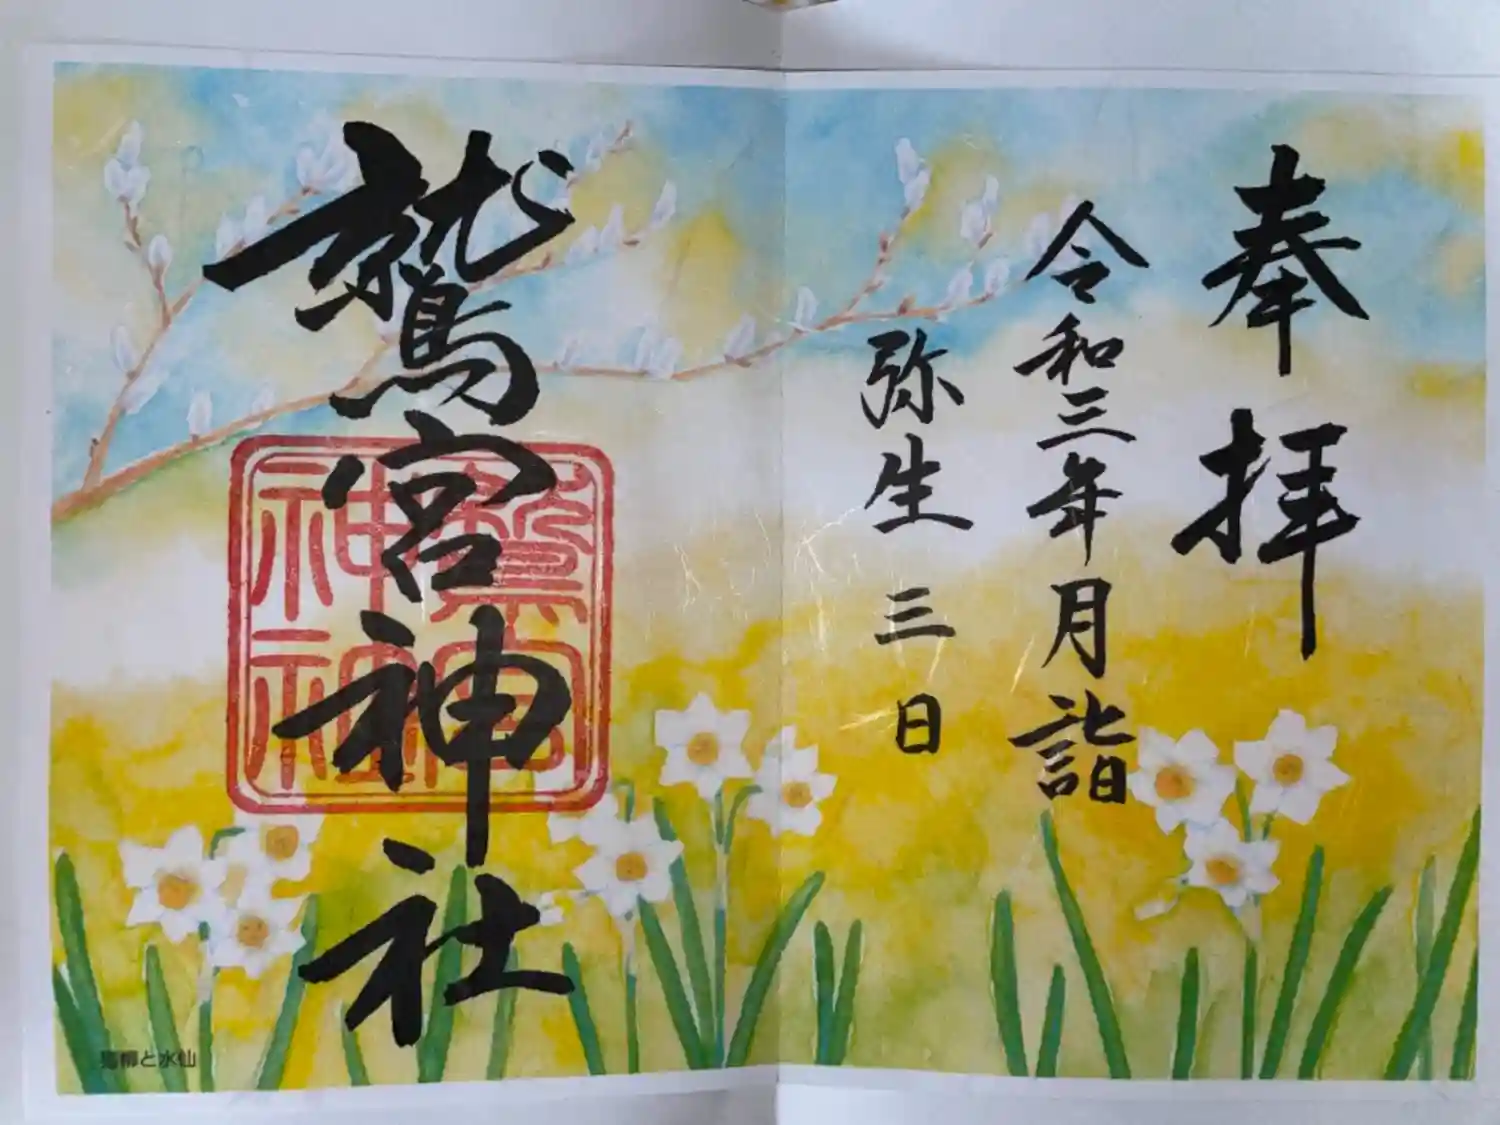 奉拝
令和三年月詣
弥生三日
鷲宮神社
鷲宮
神社
と水仙